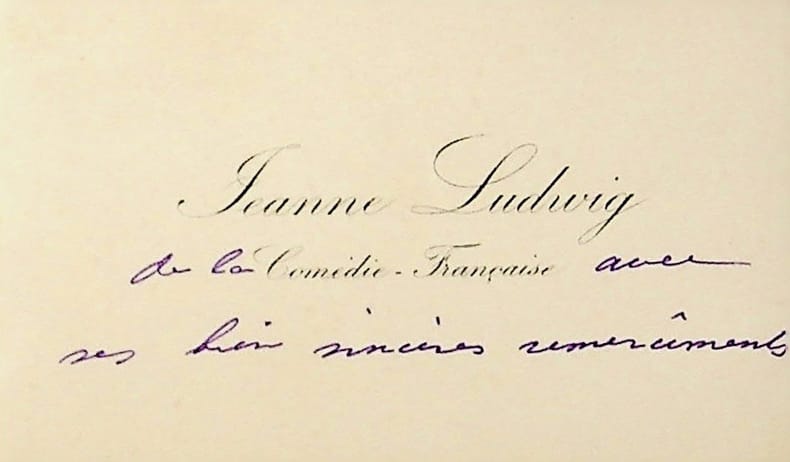 Jeanne Ludwig
de la Comédie-Française avec
ses bien sincères remercîments